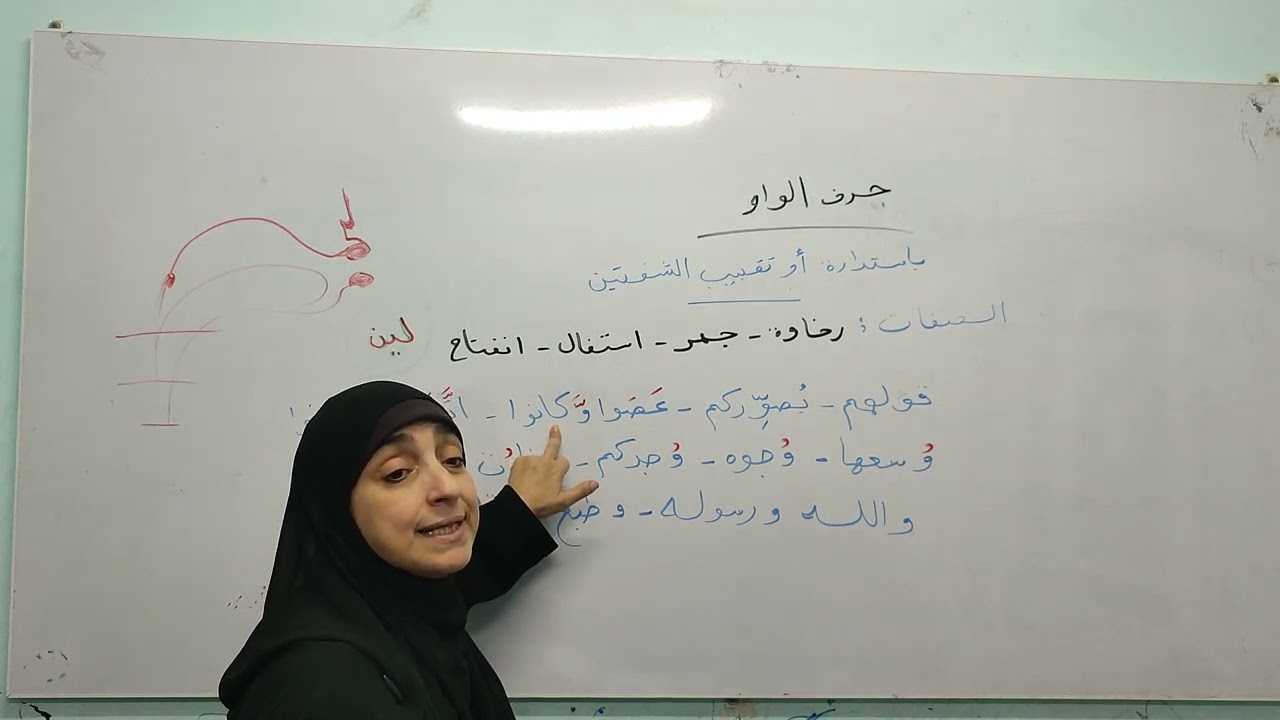 حرف الواو
باستدارة أو تقبيب الشفتين
الصفات : رخاوة - جهر - استفال - انفتاح لين
قولهم - يُصوِّركم - عَصَوا وَّكانوا -
وُسعها - وُجوه - وُجدكم -
والله ورسوله - وطبع